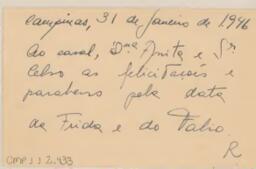 Campinas, 31 de Janeiro de 1996
Ao casal, Dna Anita e Sr
Celso as felicitações e
parabens pela data
da Frida e do Fabio.
R
CMP.1.1.2.433